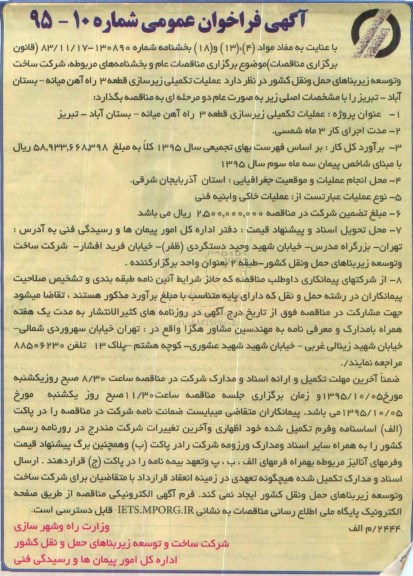 آگهی فراخوان عمومی شماره ۱۰ - ۹۵
با عنایت به مفاد مواد (۴)،(۱۳) و(۱۸) بخشنامه شماره ۱۳۰۸۹۰-۸۳/۱۱/۱۷ (قانون
برگزاری مناقصات)موضوع برگزاری مناقصات عام و بخشنامه‌های مربوطه، شرکت ساخت
وتوسعه زیربناهای حمل ونقل کشور در نظر دارد عملیات تکمیلی زیرسازی قطعه ۳ راه آهن میانه - بستان
آباد - تبریز را با مشخصات اصلی زیر به صورت عام دو مرحله ای به مناقصه بگذارد:
۱- عنوان پروژه : عملیات تکمیلی زیرسازی قطعه ۳ راه آهن میانه - بستان آباد - تبریز
۲- مدت اجرای کار ۳ ماه شمسی.
۳- برآورد کل کار : بر اساس فهرست بهای تجمیعی سال ۱۳۹۵ کلاً به مبلغ ۵۸,۹۳۳,۶۶۸,۳۹۸ ریال
با مبنای شاخص پیمان سه ماه سوم سال ۱۳۹۵
۴- محل انجام عملیات و موقعیت جغرافیایی : استان آذربایجان شرقی.
۵- نوع عملیات عبارتست از: عملیات خاکی وابنیه فنی
۶- مبلغ تضمین شرکت در مناقصه ۲,۵۰۰,۰۰۰,۰۰۰ ریال می باشد
۷- محل تحویل اسناد و پیشنهاد قیمت : دفتر اداره کل امور پیمان ها و رسیدگی فنی به آدرس :
تهران- بزرگراه مدرس- خیابان شهید وحید دستگردی (ظفر)- خیابان فرید افشار- شرکت ساخت
وتوسعه زیربناهای حمل ونقل کشور-طبقه ۲ بعنوان واحد برگزارکننده .
۸- از شرکتهای پیمانکاری داوطلب مناقصه که حائز شرایط آئین نامه طبقه بندی و تشخیص صلاحیت
پیمانکاران در رشته حمل و نقل که دارای پایه متناسب با مبلغ برآورد مذکور هستند ، تقاضا میشود
جهت مشارکت در مناقصه فوق از تاریخ درج آگهی در روزنامه های کثیرالانتشار به مدت یک هفته
همراه بامدارک و معرفی نامه به مهندسین مشاور هگزا واقع در : تهران خیابان سهروردی شمالی-
خیابان شهید زینالی غربی - خیابان شهید شهید عشوری- کوچه هشتم -پلاک ۱۳ تلفن ۸۸۵۰۶۲۳۰
مراجعه نمایند/.
ضمناً آخرین مهلت تکمیل و ارائه اسناد و مدارک شرکت در مناقصه ساعت ۸/۳۰ صبح روزیکشنبه
مورخ۱۳۹۵/۱۰/۰۵و زمان برگزاری جلسه مناقصه ساعت۱۱/۳۰صبح روز یکشنبه مورخ
۱۳۹۵/۱۰/۰۵می باشد. پیمانکاران متقاضی میبایست ضمانت نامه شرکت در مناقصه را در پاکت
(الف) اساسنامه وفرم تکمیل شده خود اظهاری وآخرین تغییرات شرکت مندرج در روزنامه رسمی
کشور را به همراه سایر اسناد ومدارک ورزومه شرکت رادر پاکت (ب) وهمچنین برگ پیشنهاد قیمت
وفرمهای آنالیز مربوطه بهمراه فرمهای الف ، ب ، پ وتعهد بیمه نامه را در پاکت (ج) قراردهند . ارسال
اسناد و مدارک تکمیل شده هیچگونه تعهدی در زمینه انعقاد قرارداد با متقاضیان برای شرکت ساخت
وتوسعه زیربناهای حمل ونقل کشور ایجاد نمی کند. فرم آگهی الکترونیکی مناقصه از طریق صفحه
الکترونیک پایگاه ملی اطلاع رسانی مناقصات به نشانی IETS.MPORG.IR قابل دسترسی است.
۲۴۴۴/م الف
وزارت راه وشهر سازی
شرکت ساخت و توسعه زیربناهای حمل و نقل کشور
اداره کل امور پیمان ها و رسیدگی فنی